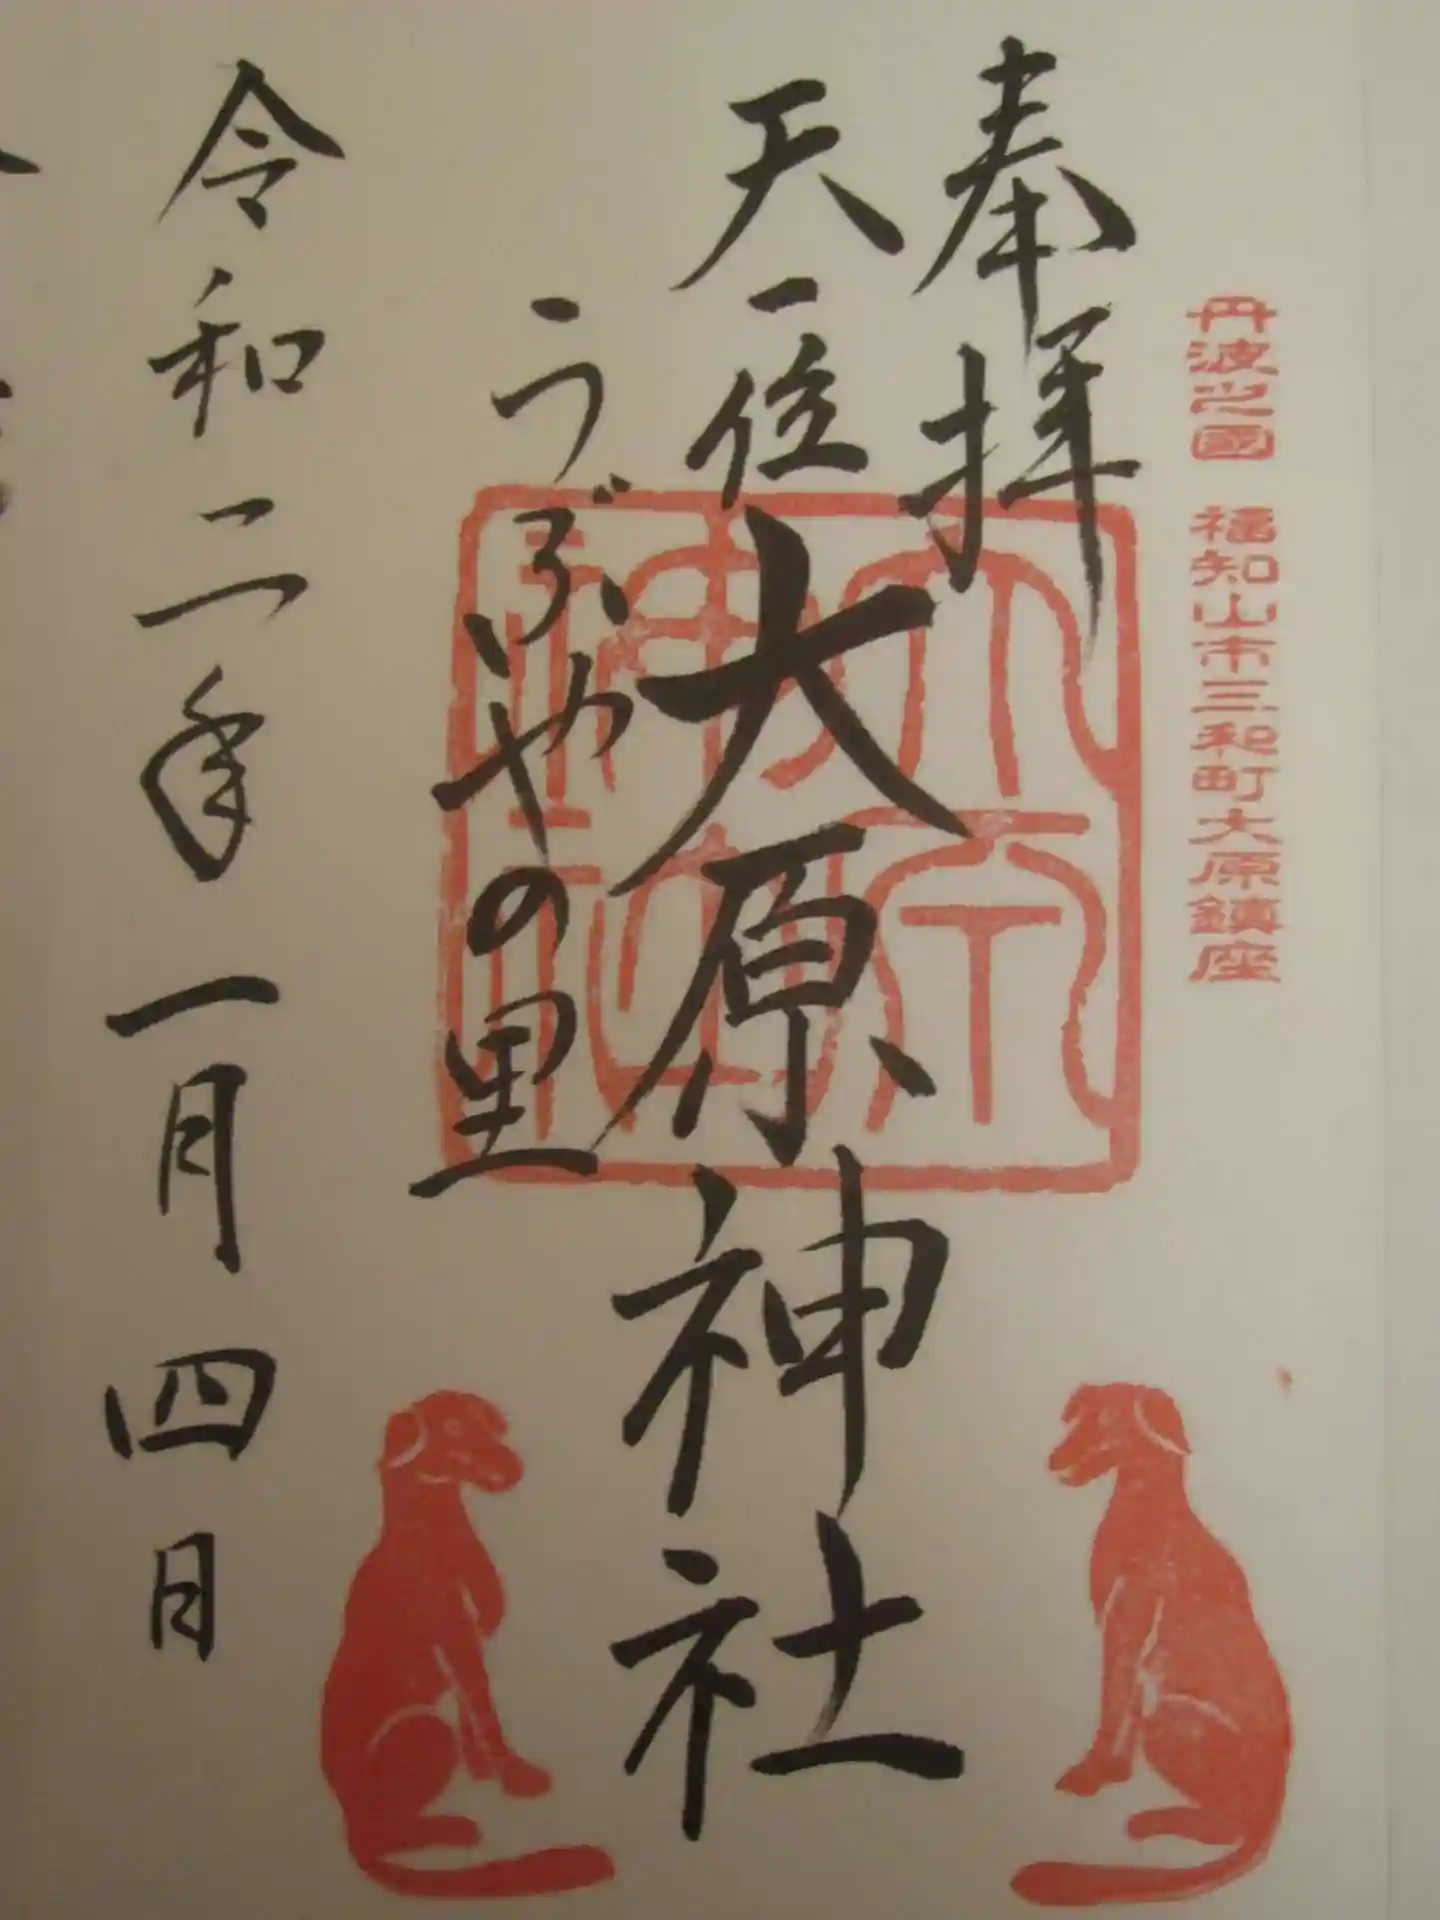 丹波之國 福知山市三和町大原鎮座
奉拝
天一位 大原神社
うぶやの里
令和二年一月四日
大原神社